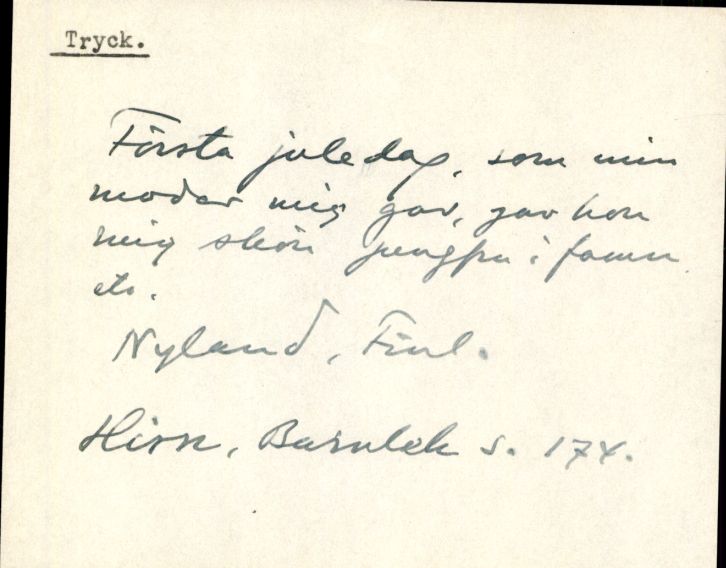 Tryck.
Första juledag, som min
moder mig gav, gav hon
mig skön jungfru i famn
etc.
Nyland, Finl.
Hirn, Barnlek s. 174.